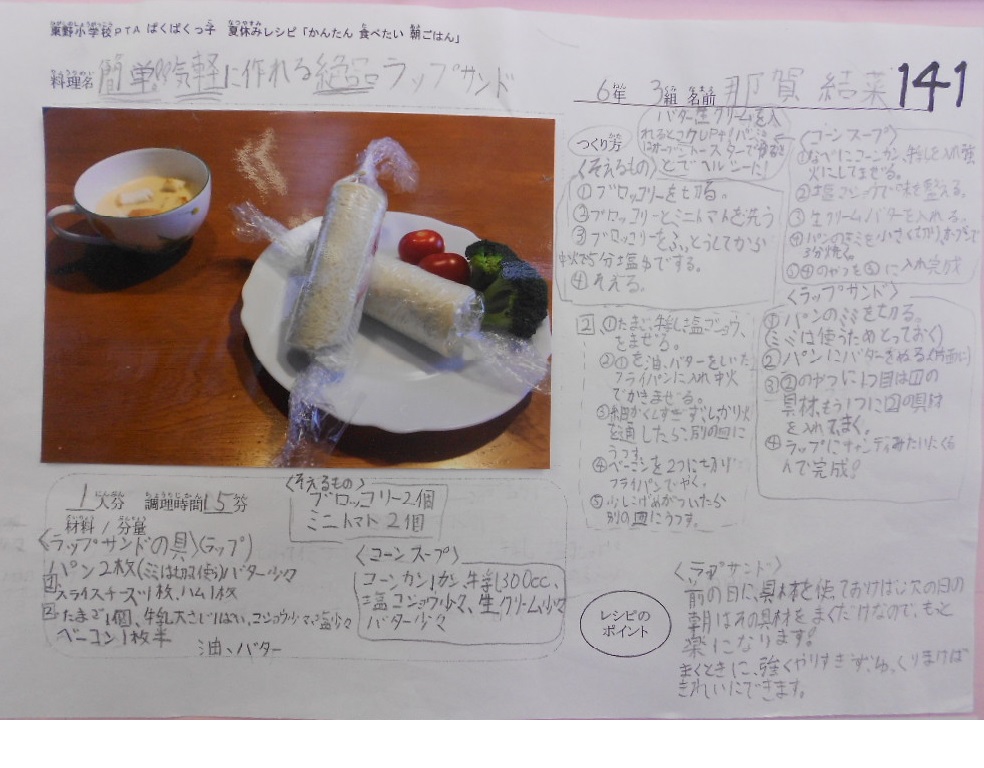 東野小学校PTA ぱくぱくっ子 夏休みレシピ「かんたん 食べたい 朝ごはん」
料理名 簡単!気軽に作れる絶品ラップサンド
6年 3組 名前 那賀 結菜 141
つくり方
バター生クリームを入
れるとコクUP!パンミミ
はオーブントースターで
とてヘルシーに!
〈そえるもの〉
①ブロッコリーを切る。
②ブロッコリーとミニトマトを洗う
③ブロッコリーをふっとうしてから
中火で5分塩ゆでする。
④そえる。
2 ①たまご、牛乳、塩こショウ、
をまぜる。
②①を油、バターをしいた
フライパンに入れ中火
でかきまぜる。
③細かくしすぎず、しっかり火
を通したら、別の皿に
うつす。
④ベーコンを2つに切り
フライパンでやく。
⑤少しこげめがついたら
別の皿にうつす。
〈コーンスープ〉
①なべにコーンカン、牛乳を入れ強
火にしてまぜる。
②塩コショウで味を整える。
③生クリームバターを入れる。
④パンのミミを小さく切り、オーブンで
3分焼く。
⑤④のやつを③に入れ完成
〈ラップサンド〉
①パンのミミを切る。
(ミミは使うためとっておく)
②パンにバターをぬる(片面に)
③②のやつに1つ目は1の
具材、もう1つに2の具材
を入れてまく。
④ラップにキャンディみたいにくる
んで完成!
1人分 調理時間 15分
材料/分量
〈そえるもの〉
ブロッコリー2個
ミニトマト2個
〈ラップサンドの具〉(ラップ)
パン2枚(ミミは切る使う)バター少々
1 スライスチーズ1枚、ハム1枚
2 たまご1個、牛乳大さじ1ぱい、コショウ少々、塩少々
ベーコン1枚半
油、バター
〈コーンスープ〉
コーンカン1カン、牛乳300cc、
塩コショウ少々、生クリーム少々
バター少々
レシピの
ポイント
〈ラップサンド〉
前の日に、具材を使っておけば、次の日の
朝はその具材をまくだけなので、もっと
楽になります!
まくときに、強くやりすぎず、ゆっくりまけば
きれいにできます。